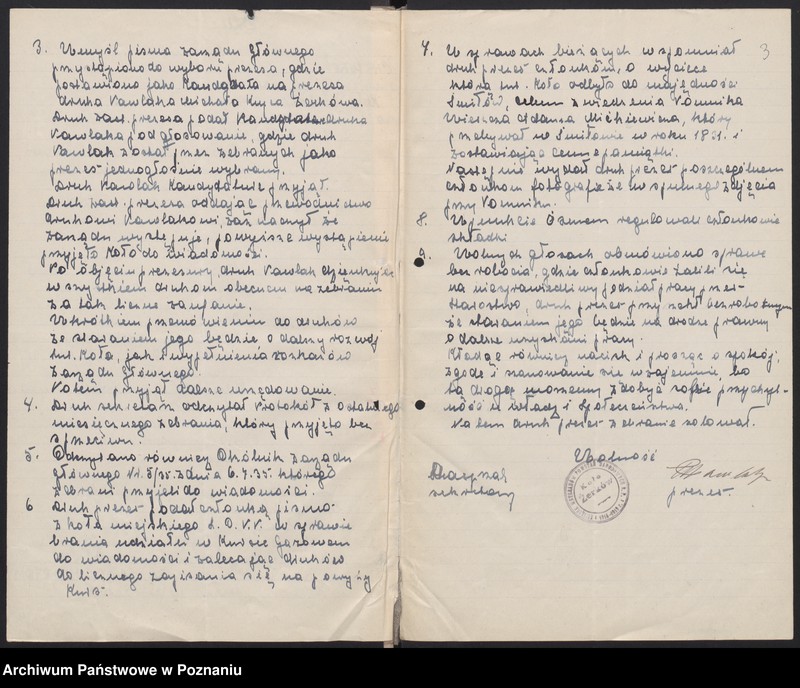 3. W myśl pisma zarządu Głównego
przystąpiono do wyboru prezesa, gdzie
postawiono jako Kandydata na prezesa
druha Pawlaka Michała
Druh zast. prezesa podał Kandydata druha
Pawlaka pod głosowanie, gdzie druh
Pawlak został przez zebranych jako
prezes jednogłośnie wybrany.
Druh Pawlak Kandydaturę przyjął.
Druh zast. prezesa oddając przewodnictwo
druhowi Pawlakowi, zaznaczył że
z zarządu występuje, powyższe wystąpienie
przyjęto Koło do wiadomości.
Po objęciu prezesury druh Pawlak dziękuje
wszystkiem druhom obecnem na zebraniu
za tak liczne zaufanie.
W krótkiem przemówieniu do druhów
że staraniem jego będzie, o dalszy rozwój
tut. Koła, jak i wypełnienia rozkazów
zarządu Głównego.
Potem przyjął dalsze urzędowanie.
4. Druh sekretarz odczytał Protokół z ostatniego
miesięcznego zebrania, który przyjęto bez
sprzeciwu.
5. Odczytano również Okólnik zarządu
Głównego Nr. 5/35 z dnia 6.4.35. którego
zebrani przyjęli do wiadomości.
6 Druh prezes podał członką pismo
z Koła miejskiego L.O.P.P. w sprawie
brania udziału w Kursie Gazowem
do wiadomości i zalecając druhów
do licznego zapisania się na powyższy
Kurs.
3
7. W sprawach bieżących wspomniał
druh prezes członkom, o wycieczce
którą tut. Koło odbyło do majętności
Śmiłów, celem zwiedzenia Pomnika
Wieszcza Adama Mickiewicza, który
przebywał w Śmiłowie w roku 1831. i
zostawiając cenne pamiątki.
Następnie wydał druh prezes poszczególnem
członkom fotografie ze wspólnego zdjęcia
przy Pomniku.
8. W punkcie ósmem regulowali członkowie
składki
9. W wolnych głosach obmówiono sprawę
bezrobocia, gdzie członkowie żalili się
na niesprawiedliwy podział pracy przez
starostwo, druh prezes przyrzekł bezrobotnym
że staraniem jego będzie na drodze prawnej
o dalsze uzyskani pracy.
Kładąc również nacisk i prosząc o spokój,
zgodę i szanowanie się wzajemnie, bo
tą drogą możemy zdobyć sobie przychyl-
ność u władz i społeczeństwa.
Na tem druh prezes zebranie solował.
Czołność
sekretarz
prezes
Koło
Żerków
Archiwum Państwowe w Poznaniu